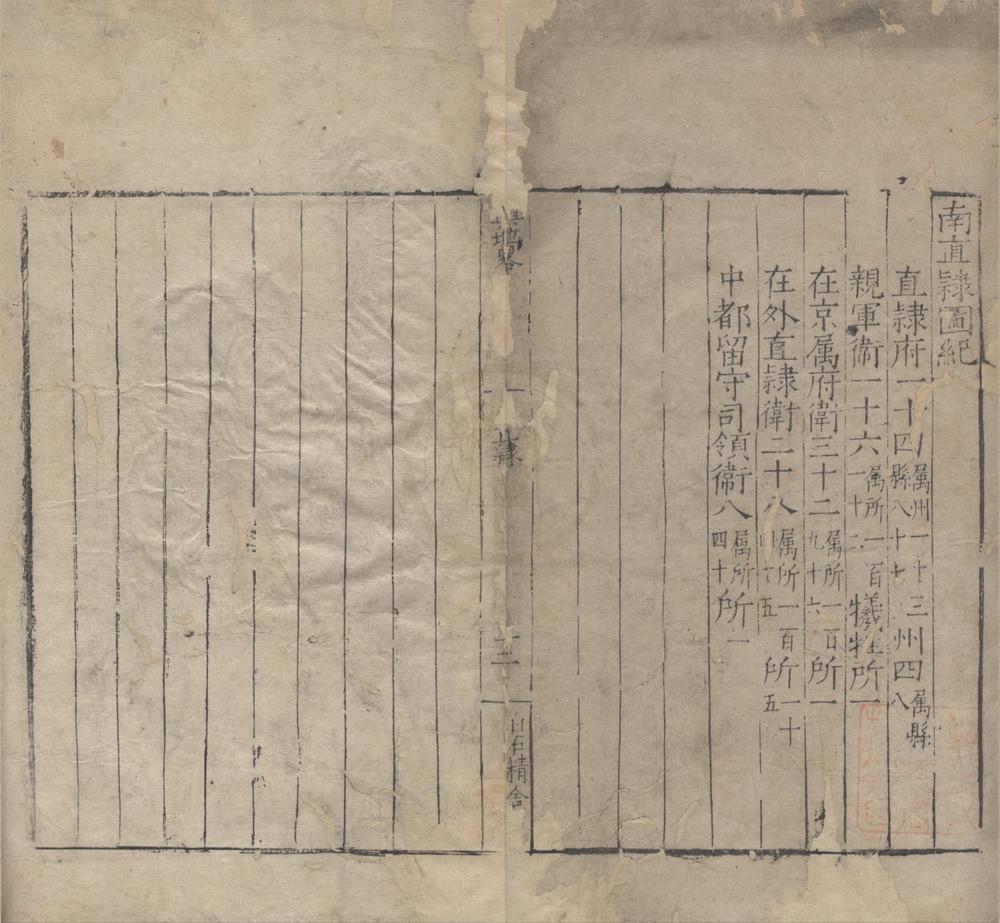 南直隸圖紀
直隸府一十四属州一十三縣八十七州四属縣八
親軍衛一十六属所一百一十二犧牲所一
在京属府衛三十二属所一百九十六所一
在外直隸衛二十八属所一百四十五所一十五
中都留守司領衛八属所四十所一
畧
隸
三
白石精舍